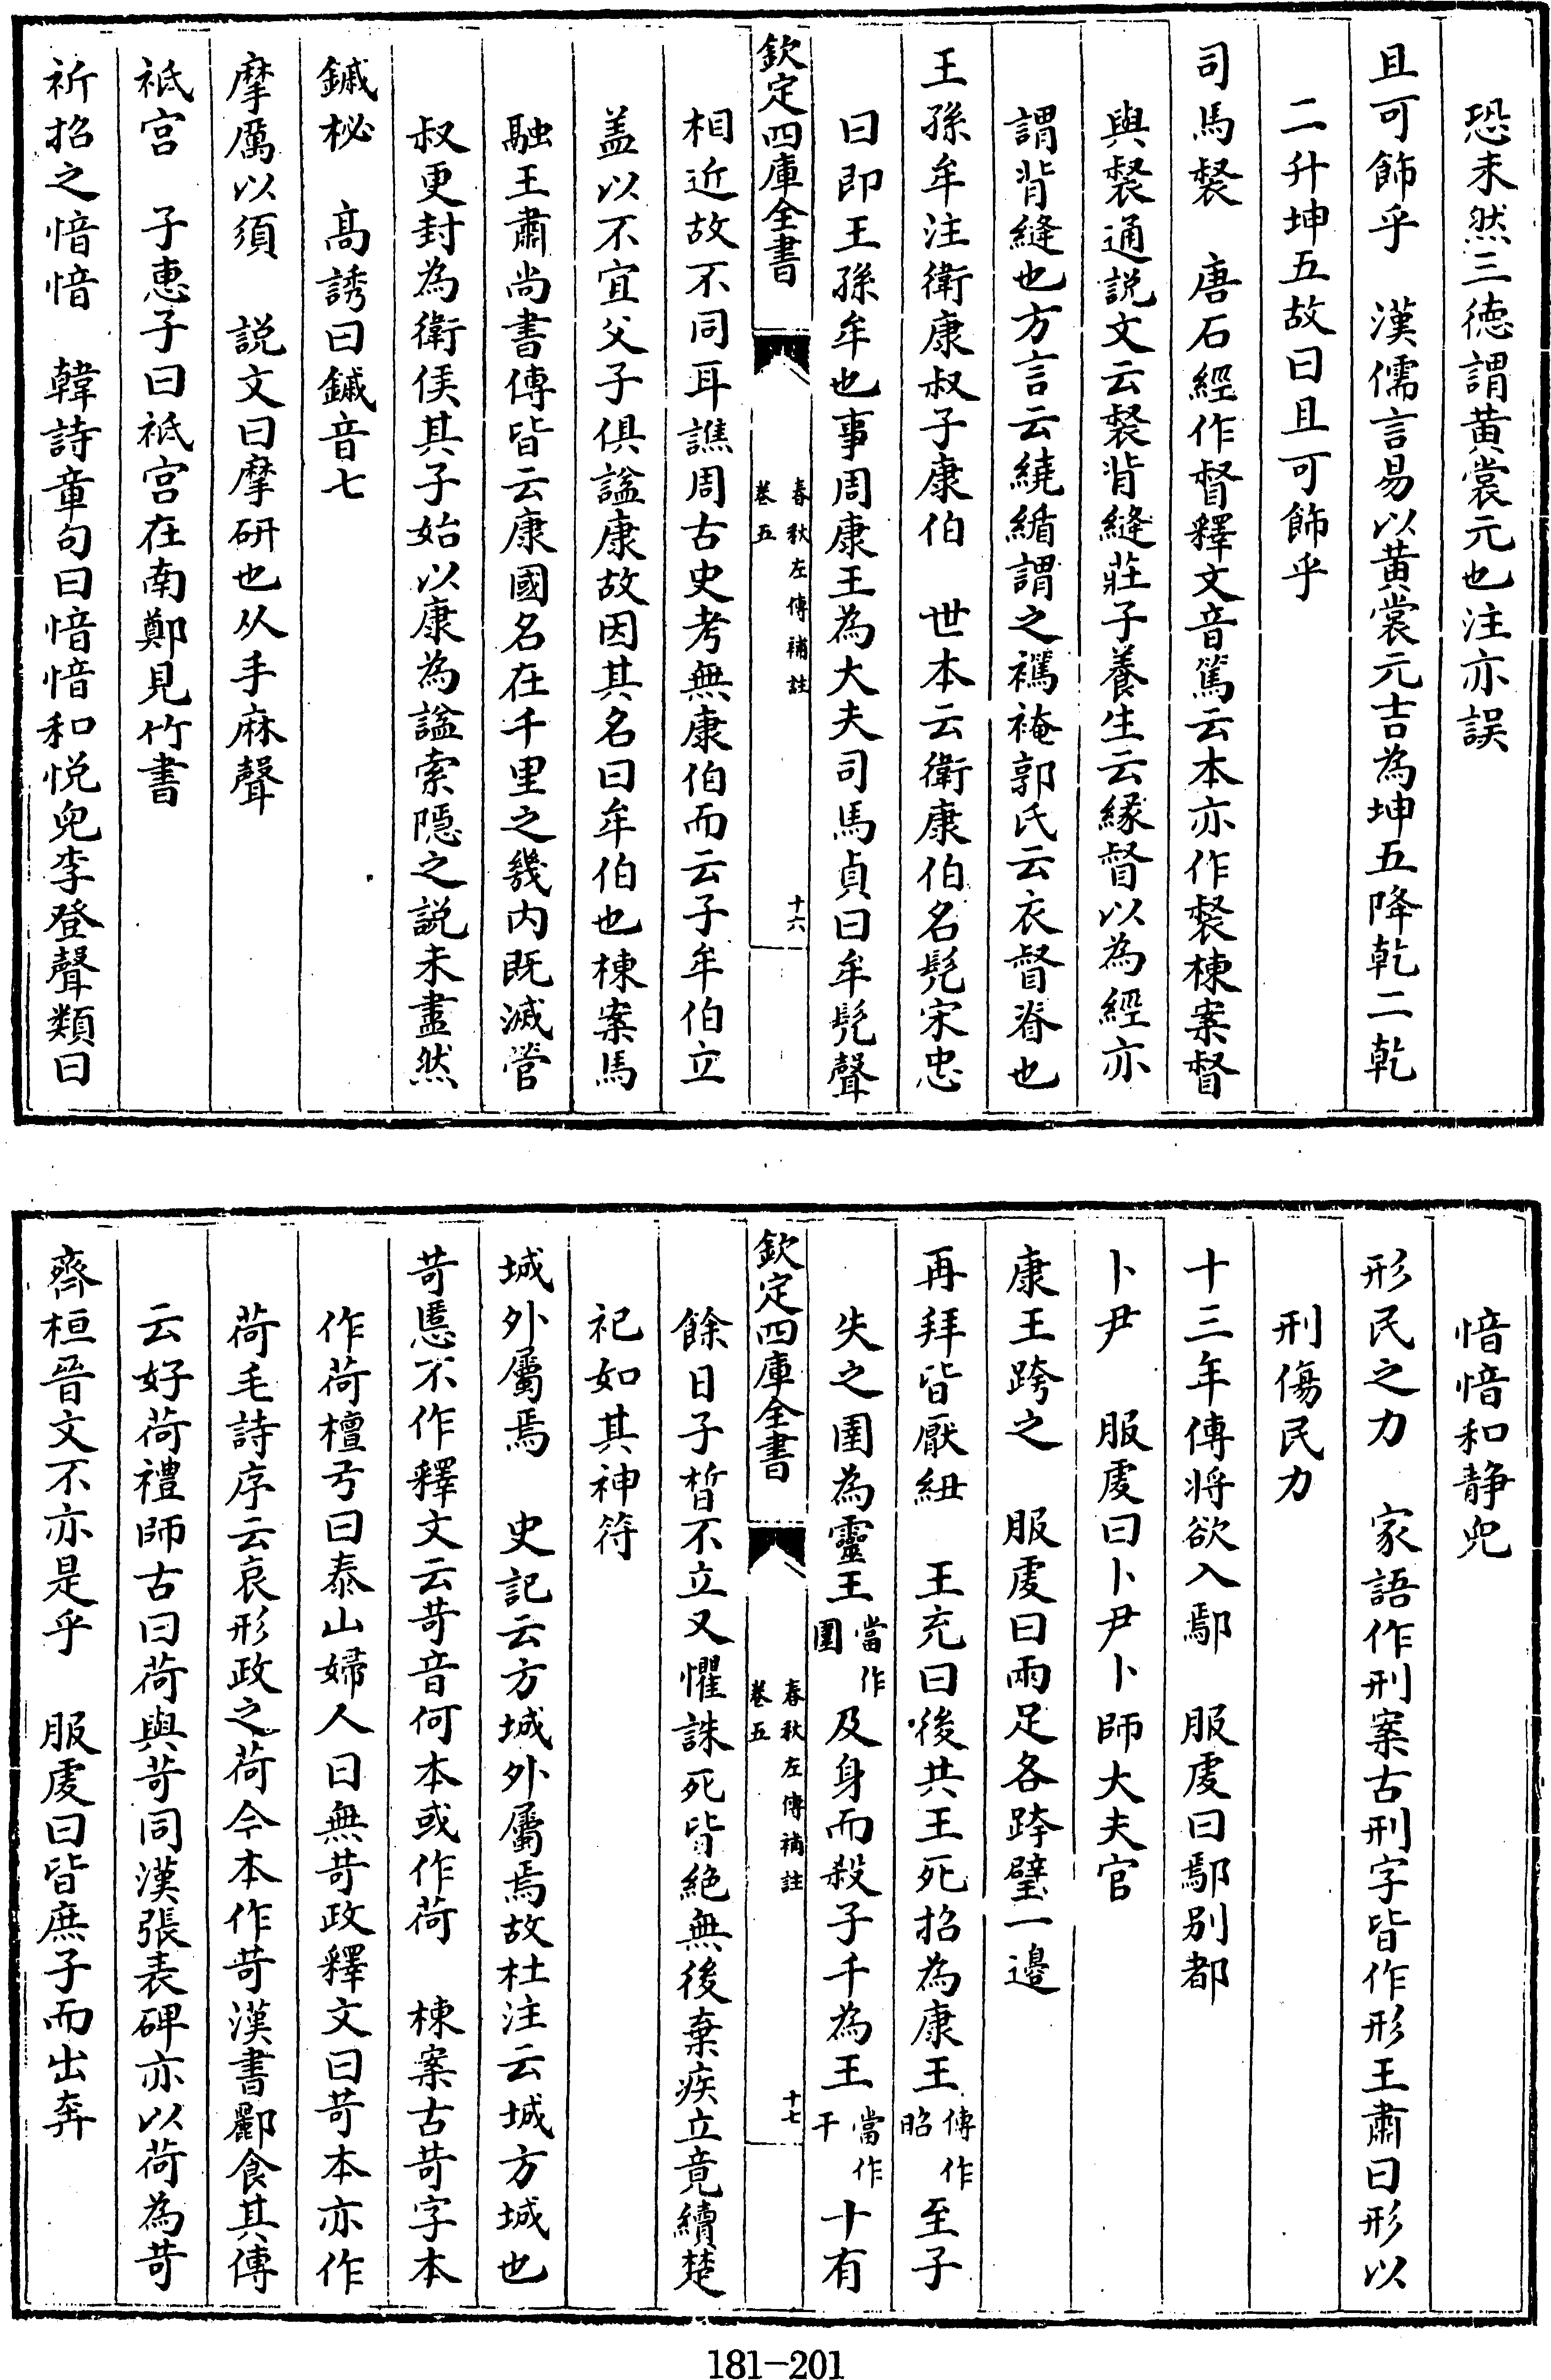 恐未然三徳謂黄裳元也注亦誤
且可飾乎　漢儒言易以黄裳元吉為坤五降乾二乾
二升坤五故曰且可飾乎
司馬裻　唐石經作督釋文音篤云本亦作裻棟案督
與裻通説文云裻背縫莊子養生云緣督以為經亦
謂背縫也方言云繞緧謂之䙜裺郭氏云衣督脊也
王孫牟注衛康叔子康伯　世本云衛康伯名髡宋忠
曰即王孫牟也事周康王為大夫司馬貞曰牟髡聲
欽定四庫全書
春秋左傳補註
卷五
十六
相近故不同耳譙周古史考無康伯而云子牟伯立
盖以不宜父子俱諡康故因其名曰牟伯也棟案馬
融王肅尚書傳皆云康國名在千里之畿内既滅管
叔更封為衛侯其子始以康為諡索隠之説未盡然
鏚柲　髙誘曰鏚音七
摩厲以須　説文曰摩研也从手麻聲
祗宫　子惠子曰祗宫在南鄭見竹書
祈招之愔愔　韓詩章句曰愔愔和悦皃李登聲類曰
愔愔和静皃
形民之力　家語作刑案古刑字皆作形王肅曰形以
刑傷民力
十三年傳将欲入鄢　服虔曰鄢别都
卜尹　服虔曰卜尹卜師大夫官
康王跨之　服虔曰兩足各跨璧一邉
再拜皆厭紐　王充曰後共王死招為康王傳作昭至子
失之圉為靈王當作圍及身而殺子千為王當作干十有
欽定四庫全書
春秋左傳補註
卷五
十七
餘日子晳不立又懼誅死皆絶無後棄疾立竟續楚
祀如其神符
城外屬焉　史記云方城外屬焉故杜注云城方城也
苛慝不作釋文云苛音何本或作荷　棟案古苛字本
作荷檀弓曰泰山婦人曰無苛政釋文曰苛本亦作
荷毛詩序云哀形政之荷今本作苛漢書酈食其傳
云好荷禮師古曰荷與苛同漢張表碑亦以荷為苛
齊桓晉文不亦是乎　服虔曰皆庶子而出奔
181-201